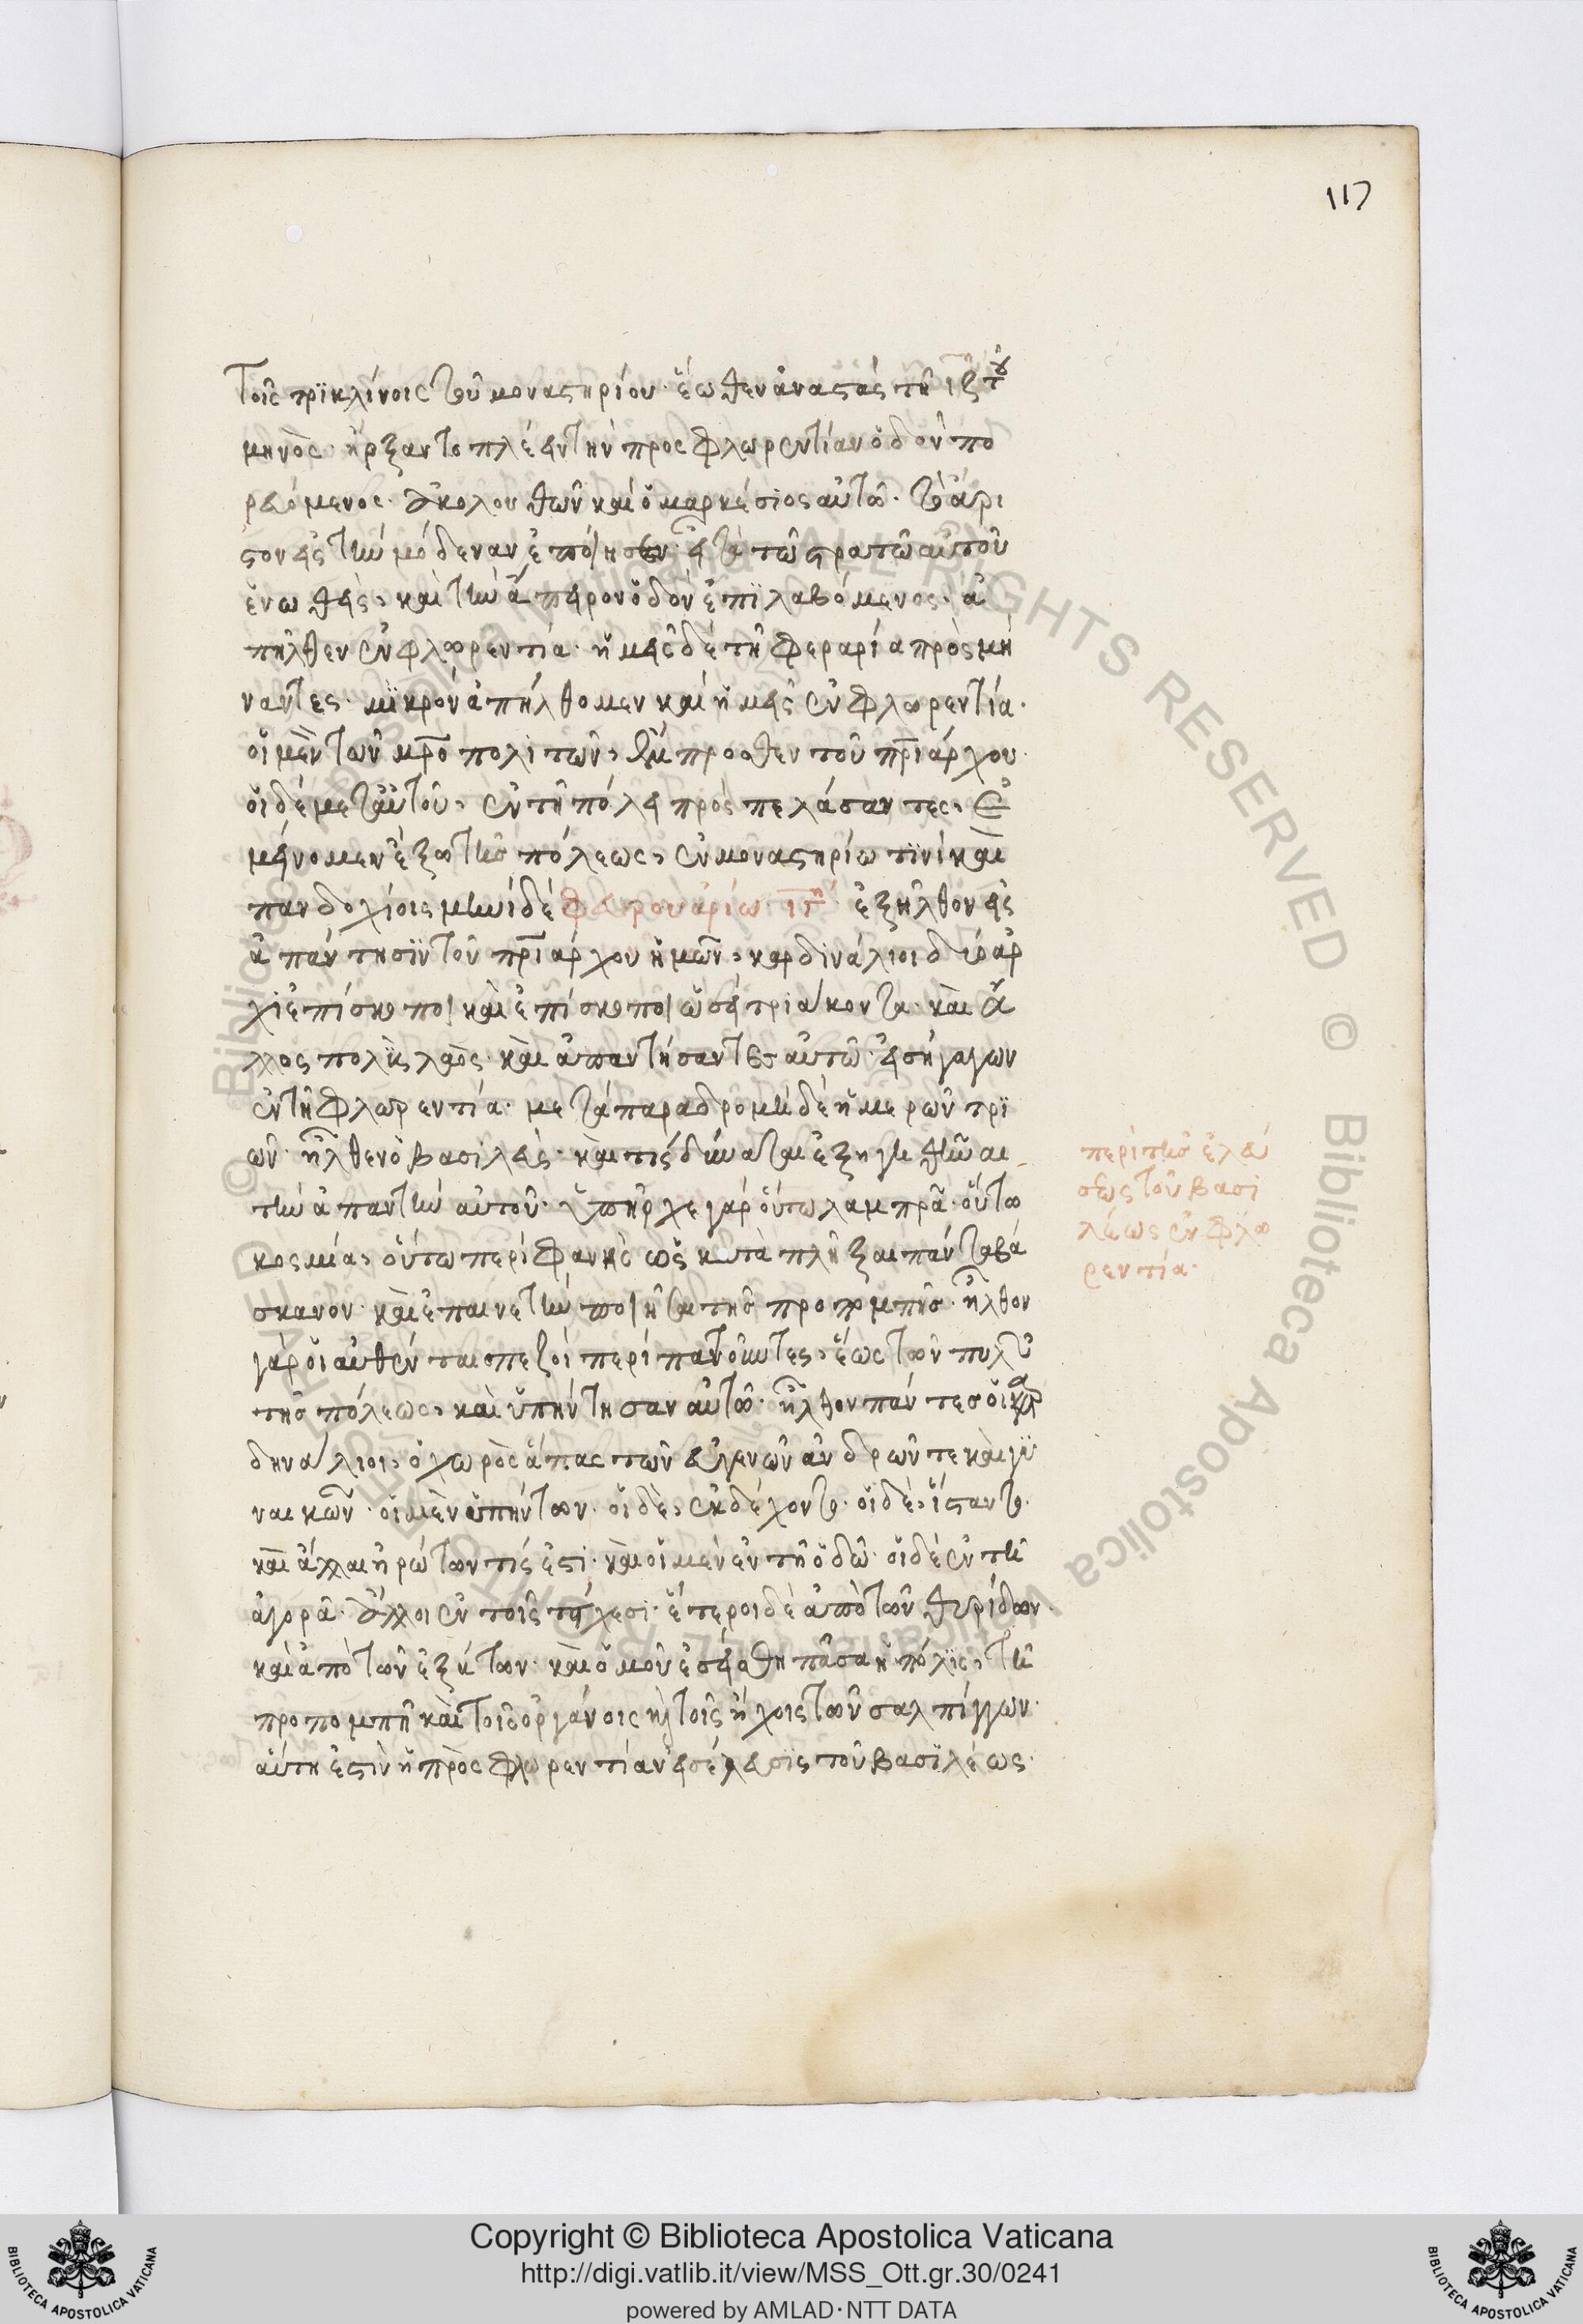 117
τοῖς τρϊκλίνοις τοῦ μοναστηρίου· ἕωθεν ἀναστάς τῆ ιζ τοῦ
μηνὸς· ἤρξαντο πλέειν τὴν προς Φλωρεντίαν ὁδὸν πο
ρευόμενος· ἀκολουθῶν καί ὁ μαρκέσιος αὐτῶ· τὸ ἄρι
στον εἰς τὴν μόδεναν ἐποίησεν· εἶτα τῶ στρατῶ αὐτοῦ
ἑνωθεὶς, καὶ τὴν ὁδὸν ἐπϊλαβόμενος· ἀ
πῆλθεν ἐν φλωρεντία· ἡμεῖς δέ τῆ Φεραρία πρὸς μή
ναντες· μϊκρόν ἀπήλθομεν καί ἡμεῖς ἐν Φλωρεντία·
οἱ μὲν τῶν μροπολιτῶν, ἔμπροσθεν τοῦ πριάρχου·
οἱ δέ μετ αὐτοῦ, ἐν τῆ πόλει πρός πελάσαντες,
μείνομεν ἔξω τῆς πόλεως, ἐν μοναστηρίω τϊνί καὶ
πανδοχίοις μηνί δέ Φευρουαρίω ιγ ἐξῆλθον εἰς
ἀπάντησϊν τοῦ πριάρχου ἡμῶν, καρδϊνάλιοι δύο ἀρ
χϊεπίσκοποι καὶ ἐπίσκοποι ὡσεί τριάκοντα· καὶ ἄ
λλος πολὺς λαὸς· καὶ ἀπαντήσαντες αὐτῶ· εἰσήγαγων
ἐν τῆ Φλωρεντία· μετά παραδρομὴ δέ ἡμερῶν τρϊ
ῶν· ἦλθεν ὁ βασιλεὺς· καὶ τίς δύναται ἐξηγηθῆναι
τὴν ἀπαντὴν αὐτοῦ· ὑπῆρχε γάρ οὕτω λαμπρᾶ· οὕτω
κοςμία, οὕτω περίΦανὴς ὡς καταπλῆξαι πάντα βά
σκανον· καὶ ἐπαινετὴν ποιῆται τῆς προπομπῆς· ἦλθον
γάρ οἱ αὐθένται πεζοί περίπατοῦντες, ἕως τῶν πυλῶν
τῆς πόλεως, καὶ ὑπήντησαν αὐτῶ· ἦλθον πάντες οἱ καρ
δηνάλιοι, ὁ χωρὸς ἅπας τῶν εὐγενῶν ἀνδρῶν τε καὶ γϋ
ναικῶν· οἱ μὲν ὑπήντων· οἱ δὲ, ἐκδέχοντο· οἱ δὲ, ἵσταντο·
καὶ ἄλλαι ἠρώτων τίς ἐστί· καὶ οἱ μὲν ἐν τῆ ὁδῶ· οἱ δέ ἐν τῆ
ἀγορᾶ· ἄλλοι ἐν τοῖς τείχεσϊ· ἕτεροι δὲ ἀπὸ τῶν θυρίδων·
καὶ ἀπὸ τῶν ἐξήτων· καὶ ὁμοῦ ἐσείσθη πᾶσα ἡ πόλϊς, τῆ
προπομπῆ καὶ τοῖς ὀργάνοις καὶ τοῖς ἤχοις τῶν σαλπίγγων·
αὕτη ἐστὶν ἡ πρὸς φλωρεντίαν εἰσέλευσϊς τοῦ βασϊλέως·
περὶ τῆς ἐλεύ
σεως τοῦ βασϊ
λέως ἐν Φλω
ρεντία·
Copyright © Biblioteca Apostolica Vaticana
http://digi.vatlib.it/view/MSS_Ott.gr.30/0241
powered by AMLAD·NTT DATA
BIBLIOTECA APOSTOLICA VATICANA
BIBLIOTECA APOSTOLICA VATICANA